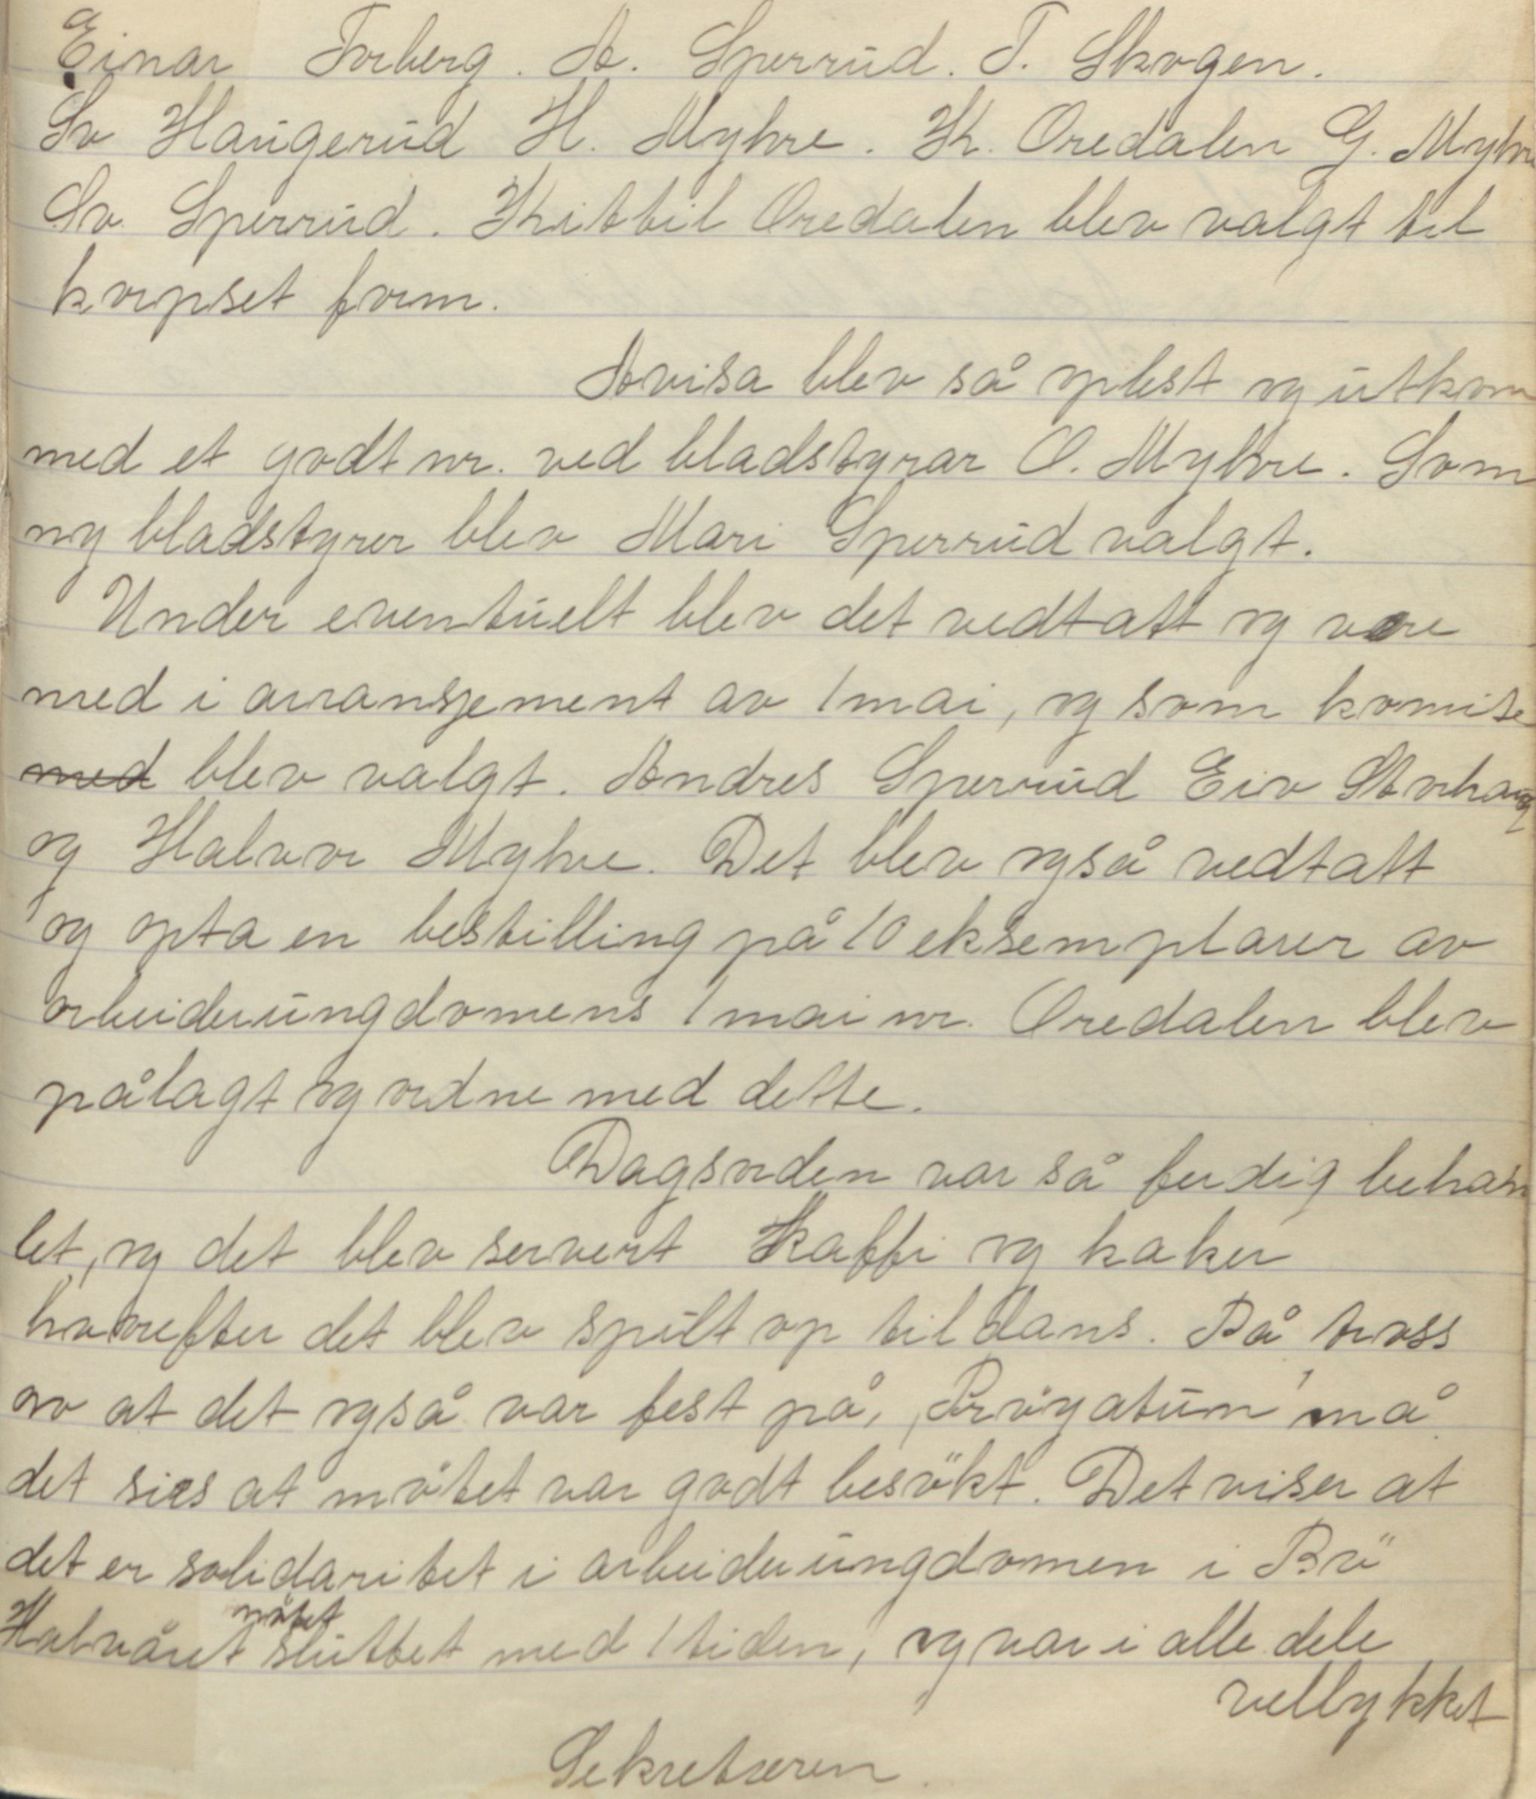 Einar Forberg. A. Sperrud. T. Skogen.
Sv Haugerud H. Myhre. K. Oredalen G. Myhre
Sv. Sperrud. Kittil Oredalen blev valgt til
korpset form.
Avisa blev så oplest og utkom
med et godt nr. ved bladstyrar O. Myhre. Som
ny bladstyrer blev Mari Sperrud valgt.
Under eventuelt blev det vedtatt og være
med i arransjement av 1 mai, og som komite
med blev valgt. Andres Sperrud Eiv Storhaug
og Halvor Myhre. Det blev også vedtatt
og opta en bestilling på 10 eksemplarer av
arbeiderungdomens 1 mai nr. Oredalen blev
pålagt og ordne med dette.
Dagsorden var så ferdig behan
let, og det blev servert Kaffi og kaker
hvorefter det blev spilt op til dans. På tross
av at det også var fest på, må
det sies at mötet var godt besökt. Det viser at
det er solidaritet i arbeiderungdomen i Bö
Halvåret mötet sluttet med 1 tiden, og var i alle dele
vellykket
Sekretæren.